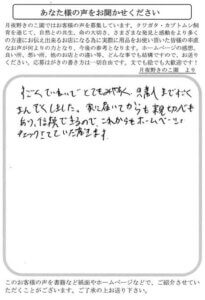 あなた様の声をお聞かせください
月夜野きのこ園ではお客様の声を募集しています。クワガタ・カブトムシ飼
育を通じて、自然との共生、命の大切さ、さまざまな発見と感動をより多く
の方達にお伝え出来るお店になる為に実際に用品をお使い頂いた皆様の率直
なお声が何よりの力となり、今後の参考となります。ホームページの感想、
良い所、悪い所、他のお店との違い等、どんな事でも結構ですので、お送り下
さい。応募はがきの書き方は一切自由です。文でも絵でも大歓迎です！
月夜野きのこ園 より
とても
まんぞくしました。 親切で
あり、信頼できるので これからもホームページ
チェックさせていただきます
このお客様の声を書籍など紙面やホームページなどで、ご紹介させてい
ただくことがございます。ご了承の上お送り下さい。